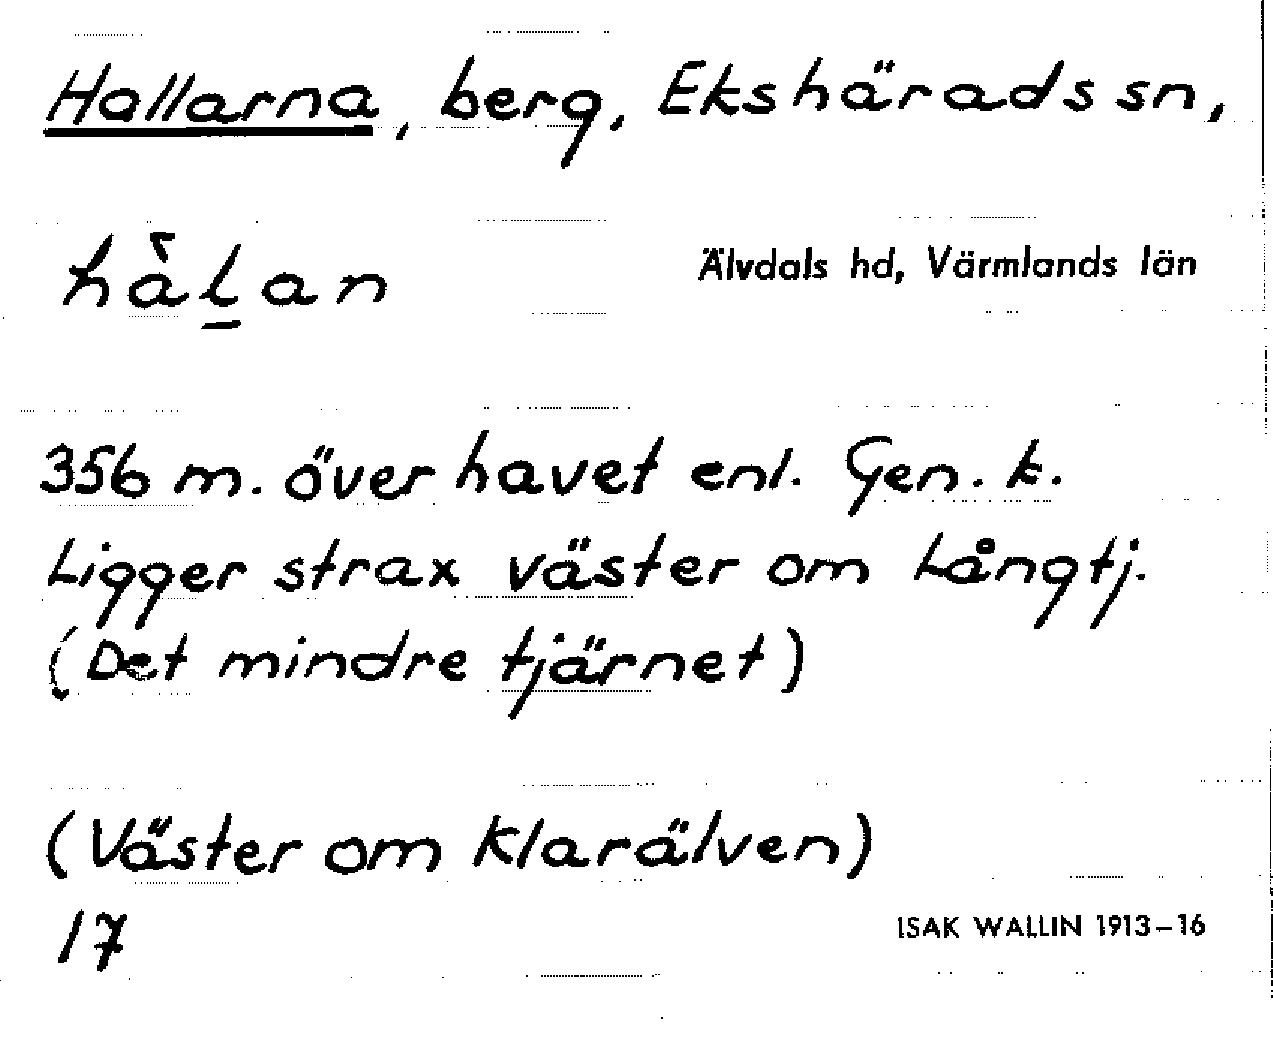 Hallarna, berg, Ekshärads sn,
hàl̠an
Älvdals hd, Värmlands län
356 m. över havet enl. Gen. k.
Ligger strax väster om Långtj.
(Det mindre tjärnet)
(Väster om Klarälven)
17
ISAK WALLIN 1913–16